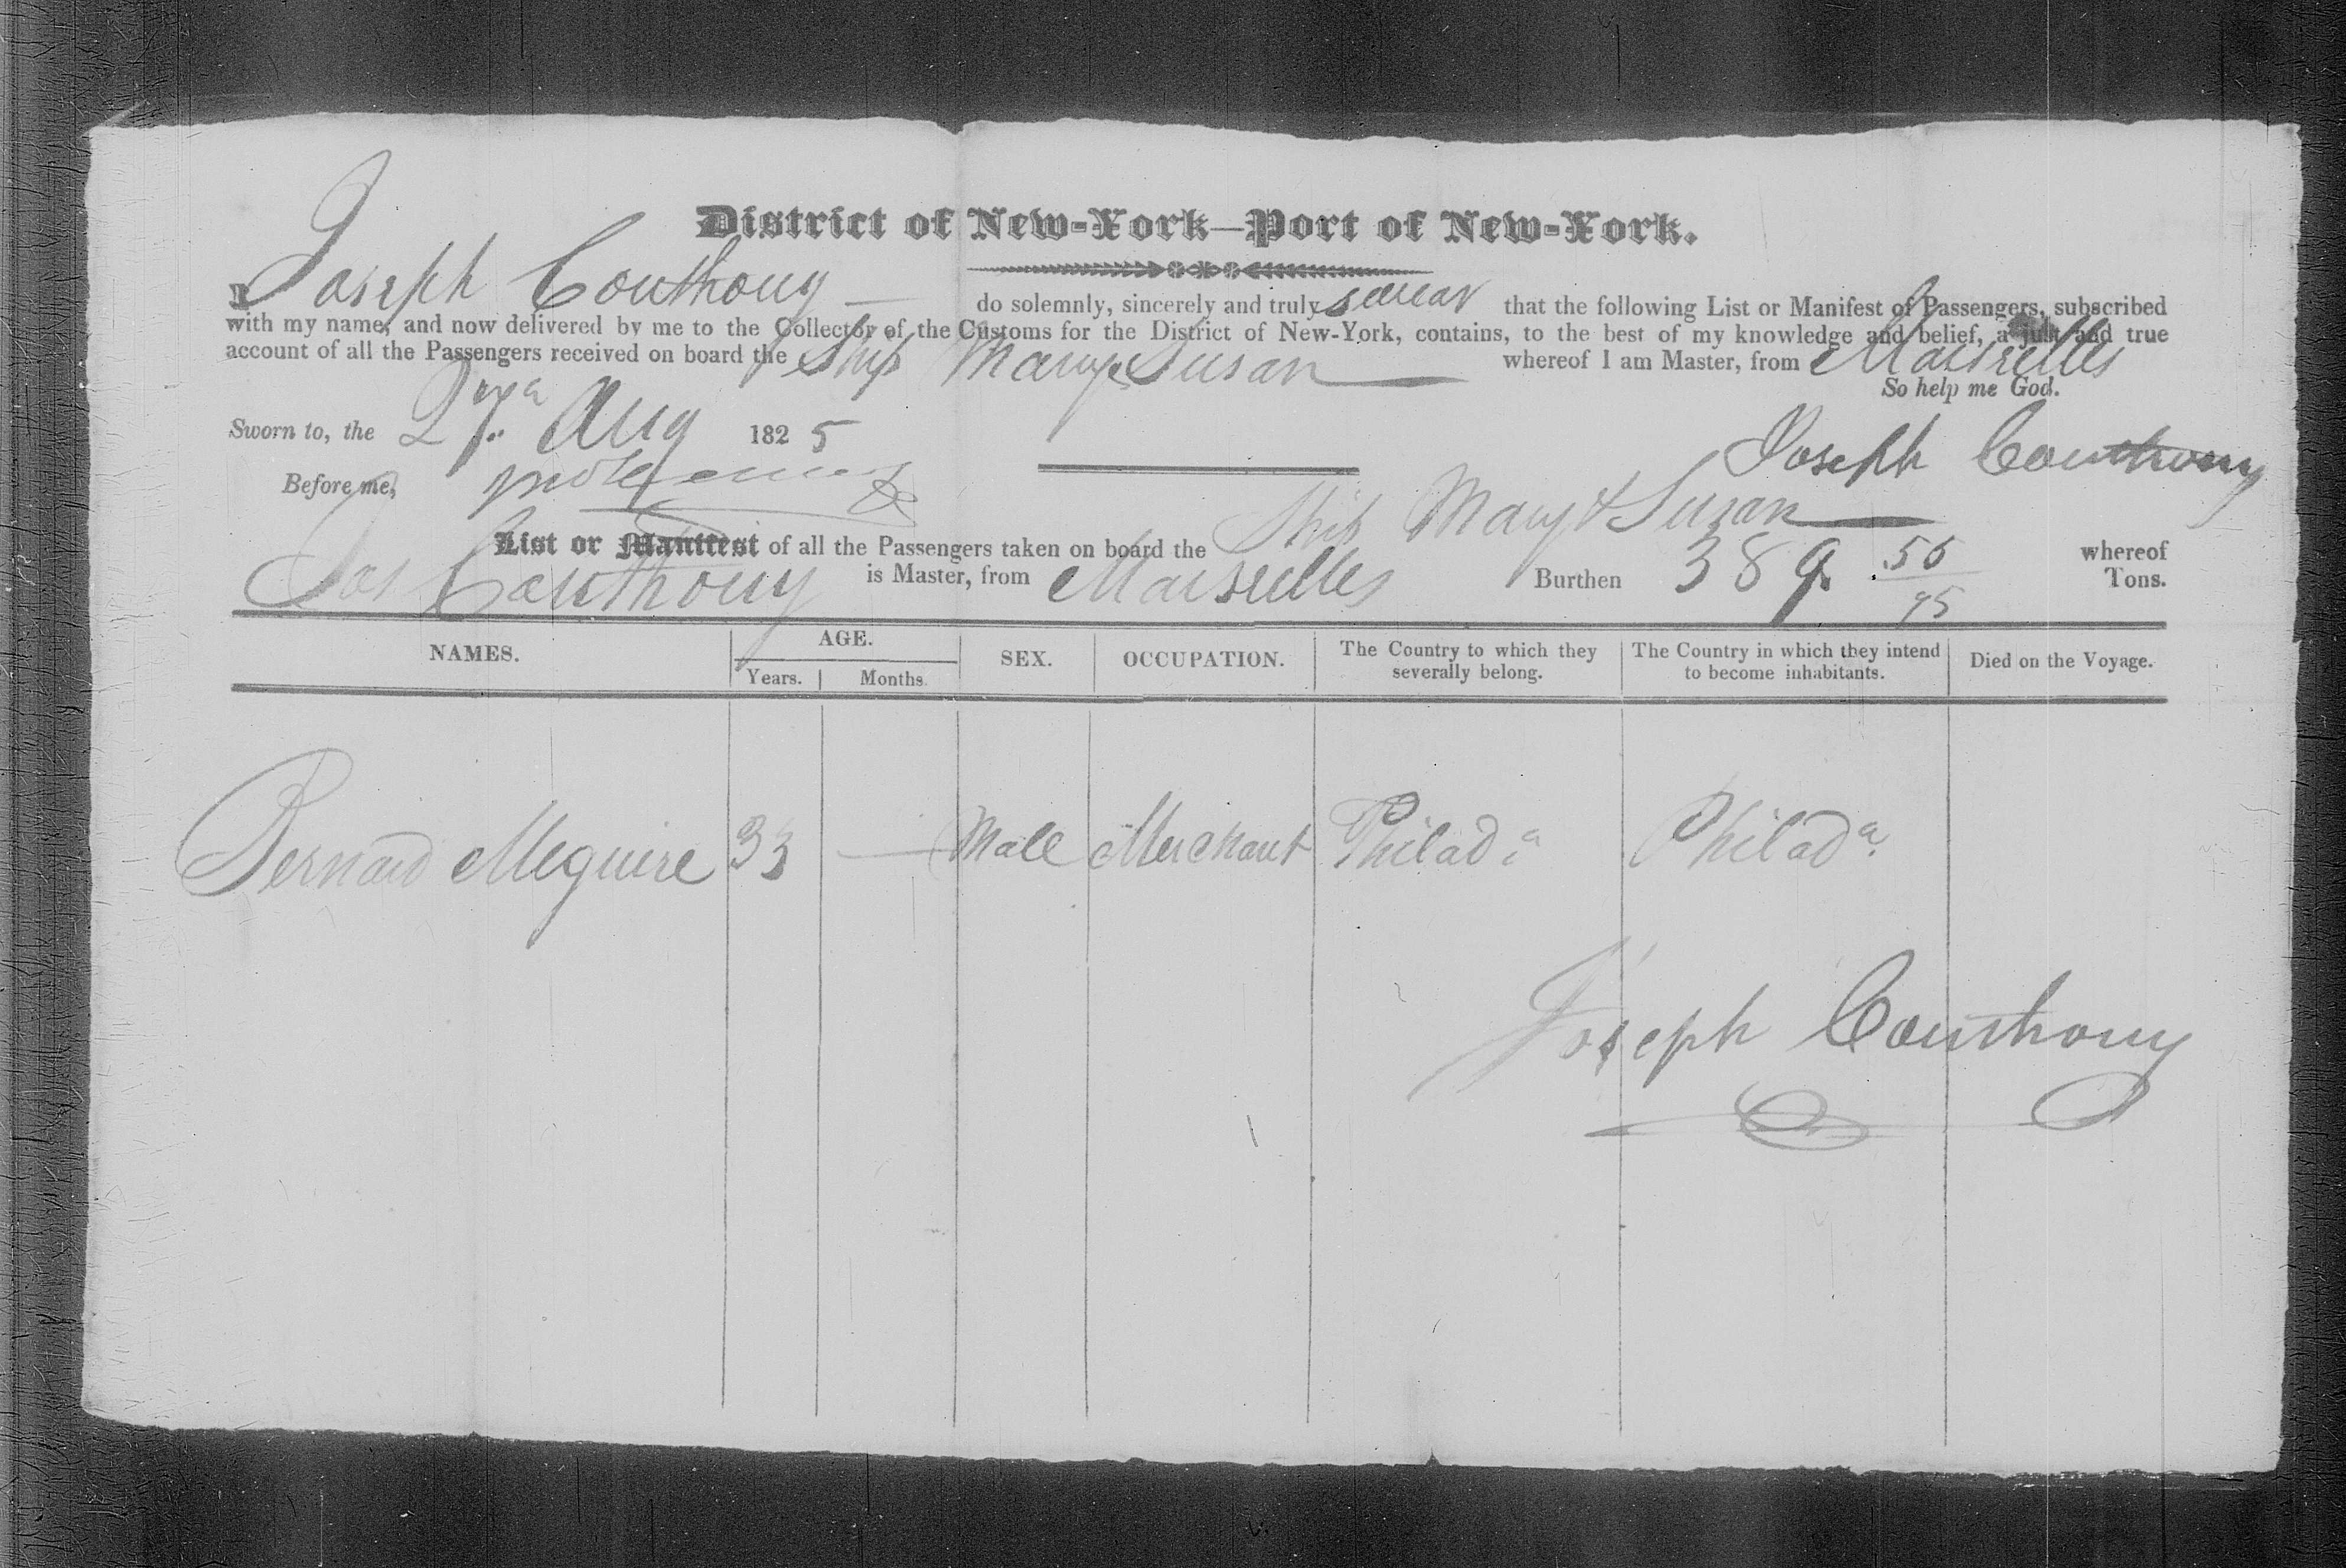 District of New-York—Port of New-York.
I Joseph Couthouy do solemnly, sincerely and truly swear that the following List or Manifest of Passengers, subscribed
with my name, and now delivered by me to the Collector of the Customs for the District of New-York, contains, to the best of my knowledge and belief, a just and true
account of all the Passengers received on board the Ship Mary & Susan whereof I am Master, from Marseilles
So help me God.
Sworn to, the 27 Aug 1825
Joseph Couthouy
Before me,
List or Manifest of all the Passengers taken on board the Ship Mary & Susan whereof
Jos Couthouy is Master, from Marseilles Burthen 389 56/95 Tons.
NAMES. AGE. Years. Months. SEX. OCCUPATION. The Country to which they severally belong. The Country in which they intend to become inhabitants. Died on the Voyage.
Bernard Meguire 33 — Male Merchant Philada Philada
Joseph Couthouy